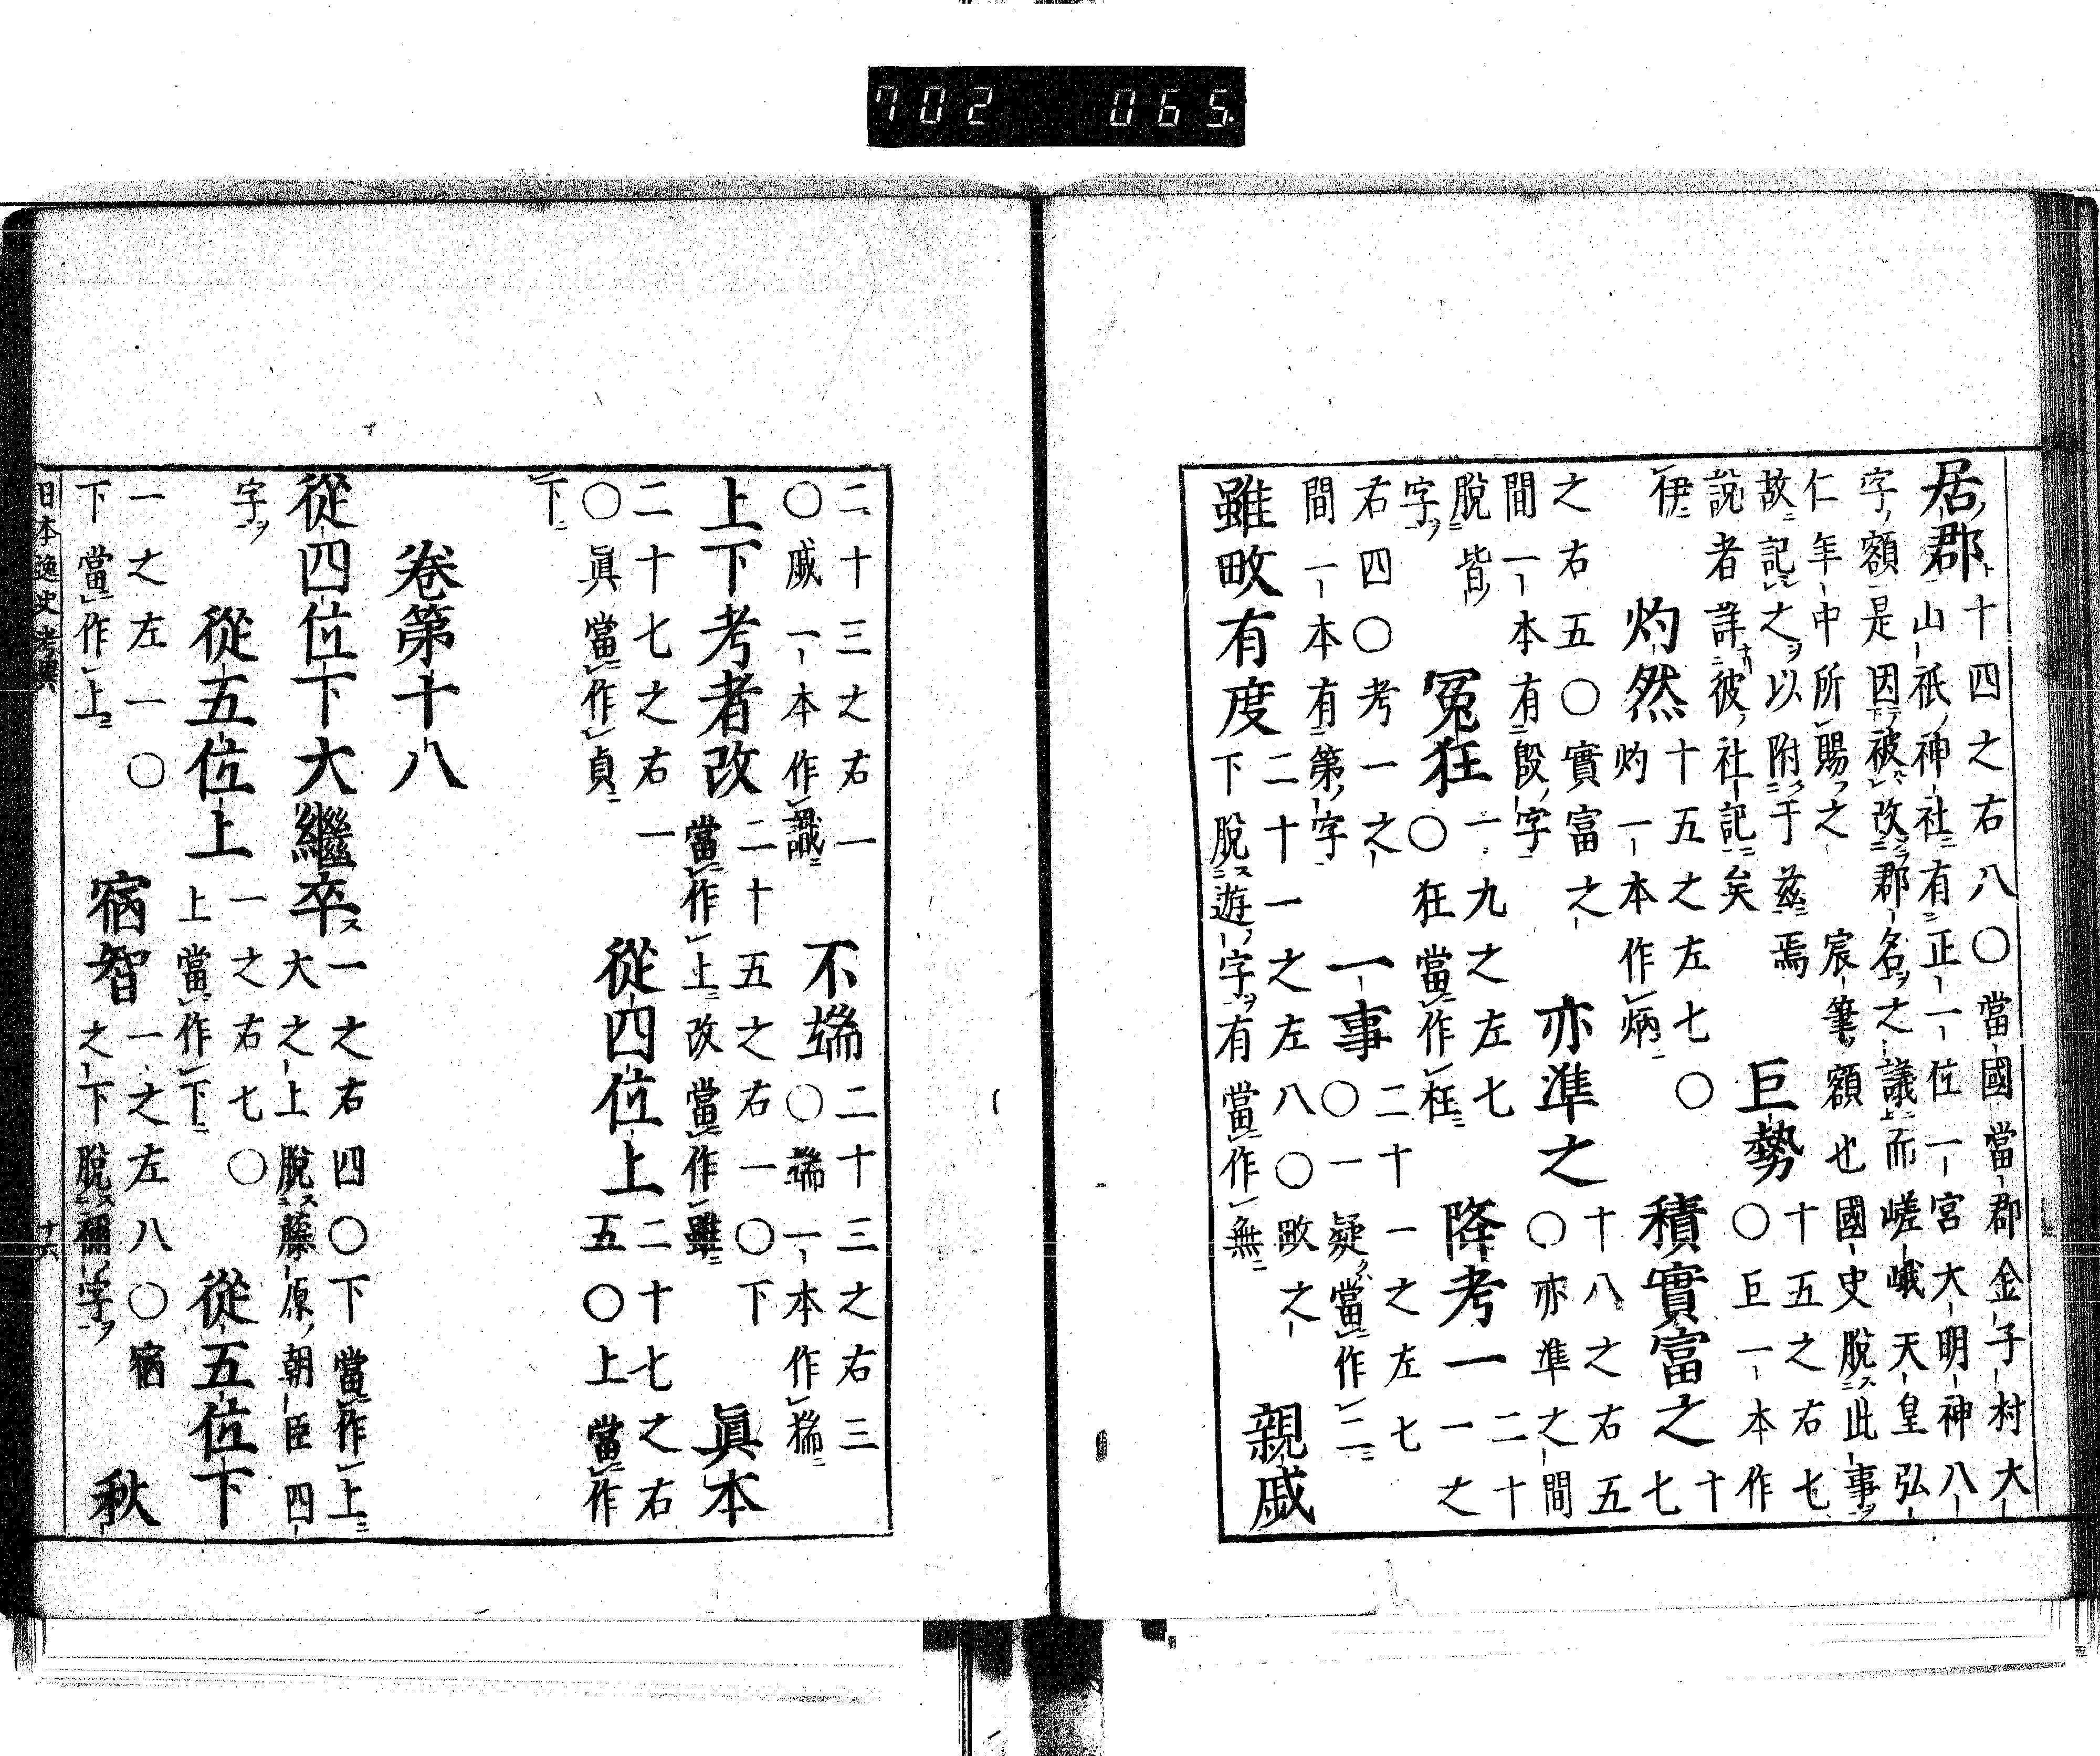 居郡 十四之右八〇當國當郡金子村大
山祇神社有正一位一宮大明神八
字額是因被改郡名之議而嵯峨天皇弘
仁年中所賜之 宸筆額也國史脱此事
故記之以附于茲焉
説者詳彼社記矣
巨勢 十五之右七
〇巨一本作
伊
灼然 十五之左七〇
灼一本作病
積實富之 十
七
之右五〇實富之
間一本有殷字
亦準之 十八之右五
〇亦準之間
脱皆
字
冤狂 一九之左七
〇狂當作枉
降考一 二十
一之
右四〇考一之
間一本有第字
一事 二十一之左七
〇一疑當作二
雖畋有度 二十一之左八〇畋之
下脱遊字有當作無
親戚
二十三之右一
〇戚一本作識
不端 二十三之右三
〇端一本作猯
上下考者改 二十五之右一〇下
當作上改當作雖
眞本
二十七之右一
〇眞當作貞
從四位上 二十七之右
五〇上當作
下
卷第十八
從四位下大繼卒 一之右四〇下當作上
大之上脱藤原朝臣四
字
從五位上 一之右七〇
上當作下
從五位下
一之左一〇
下當作上
宿智 一之左八〇宿
之下脱禰字
秋
日本逸史考異 十六
702 065